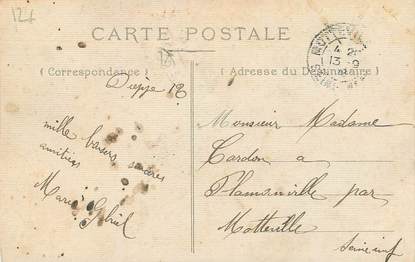 12f
CARTE POSTALE
(Correspondance)
(Adresse du Destinataire)
Dieppe 12
mille baisers sincères
amitiés
Marie Gabriel
Monsieur Madame
Cardon a
Flamanville par
Motteville
Seine inf